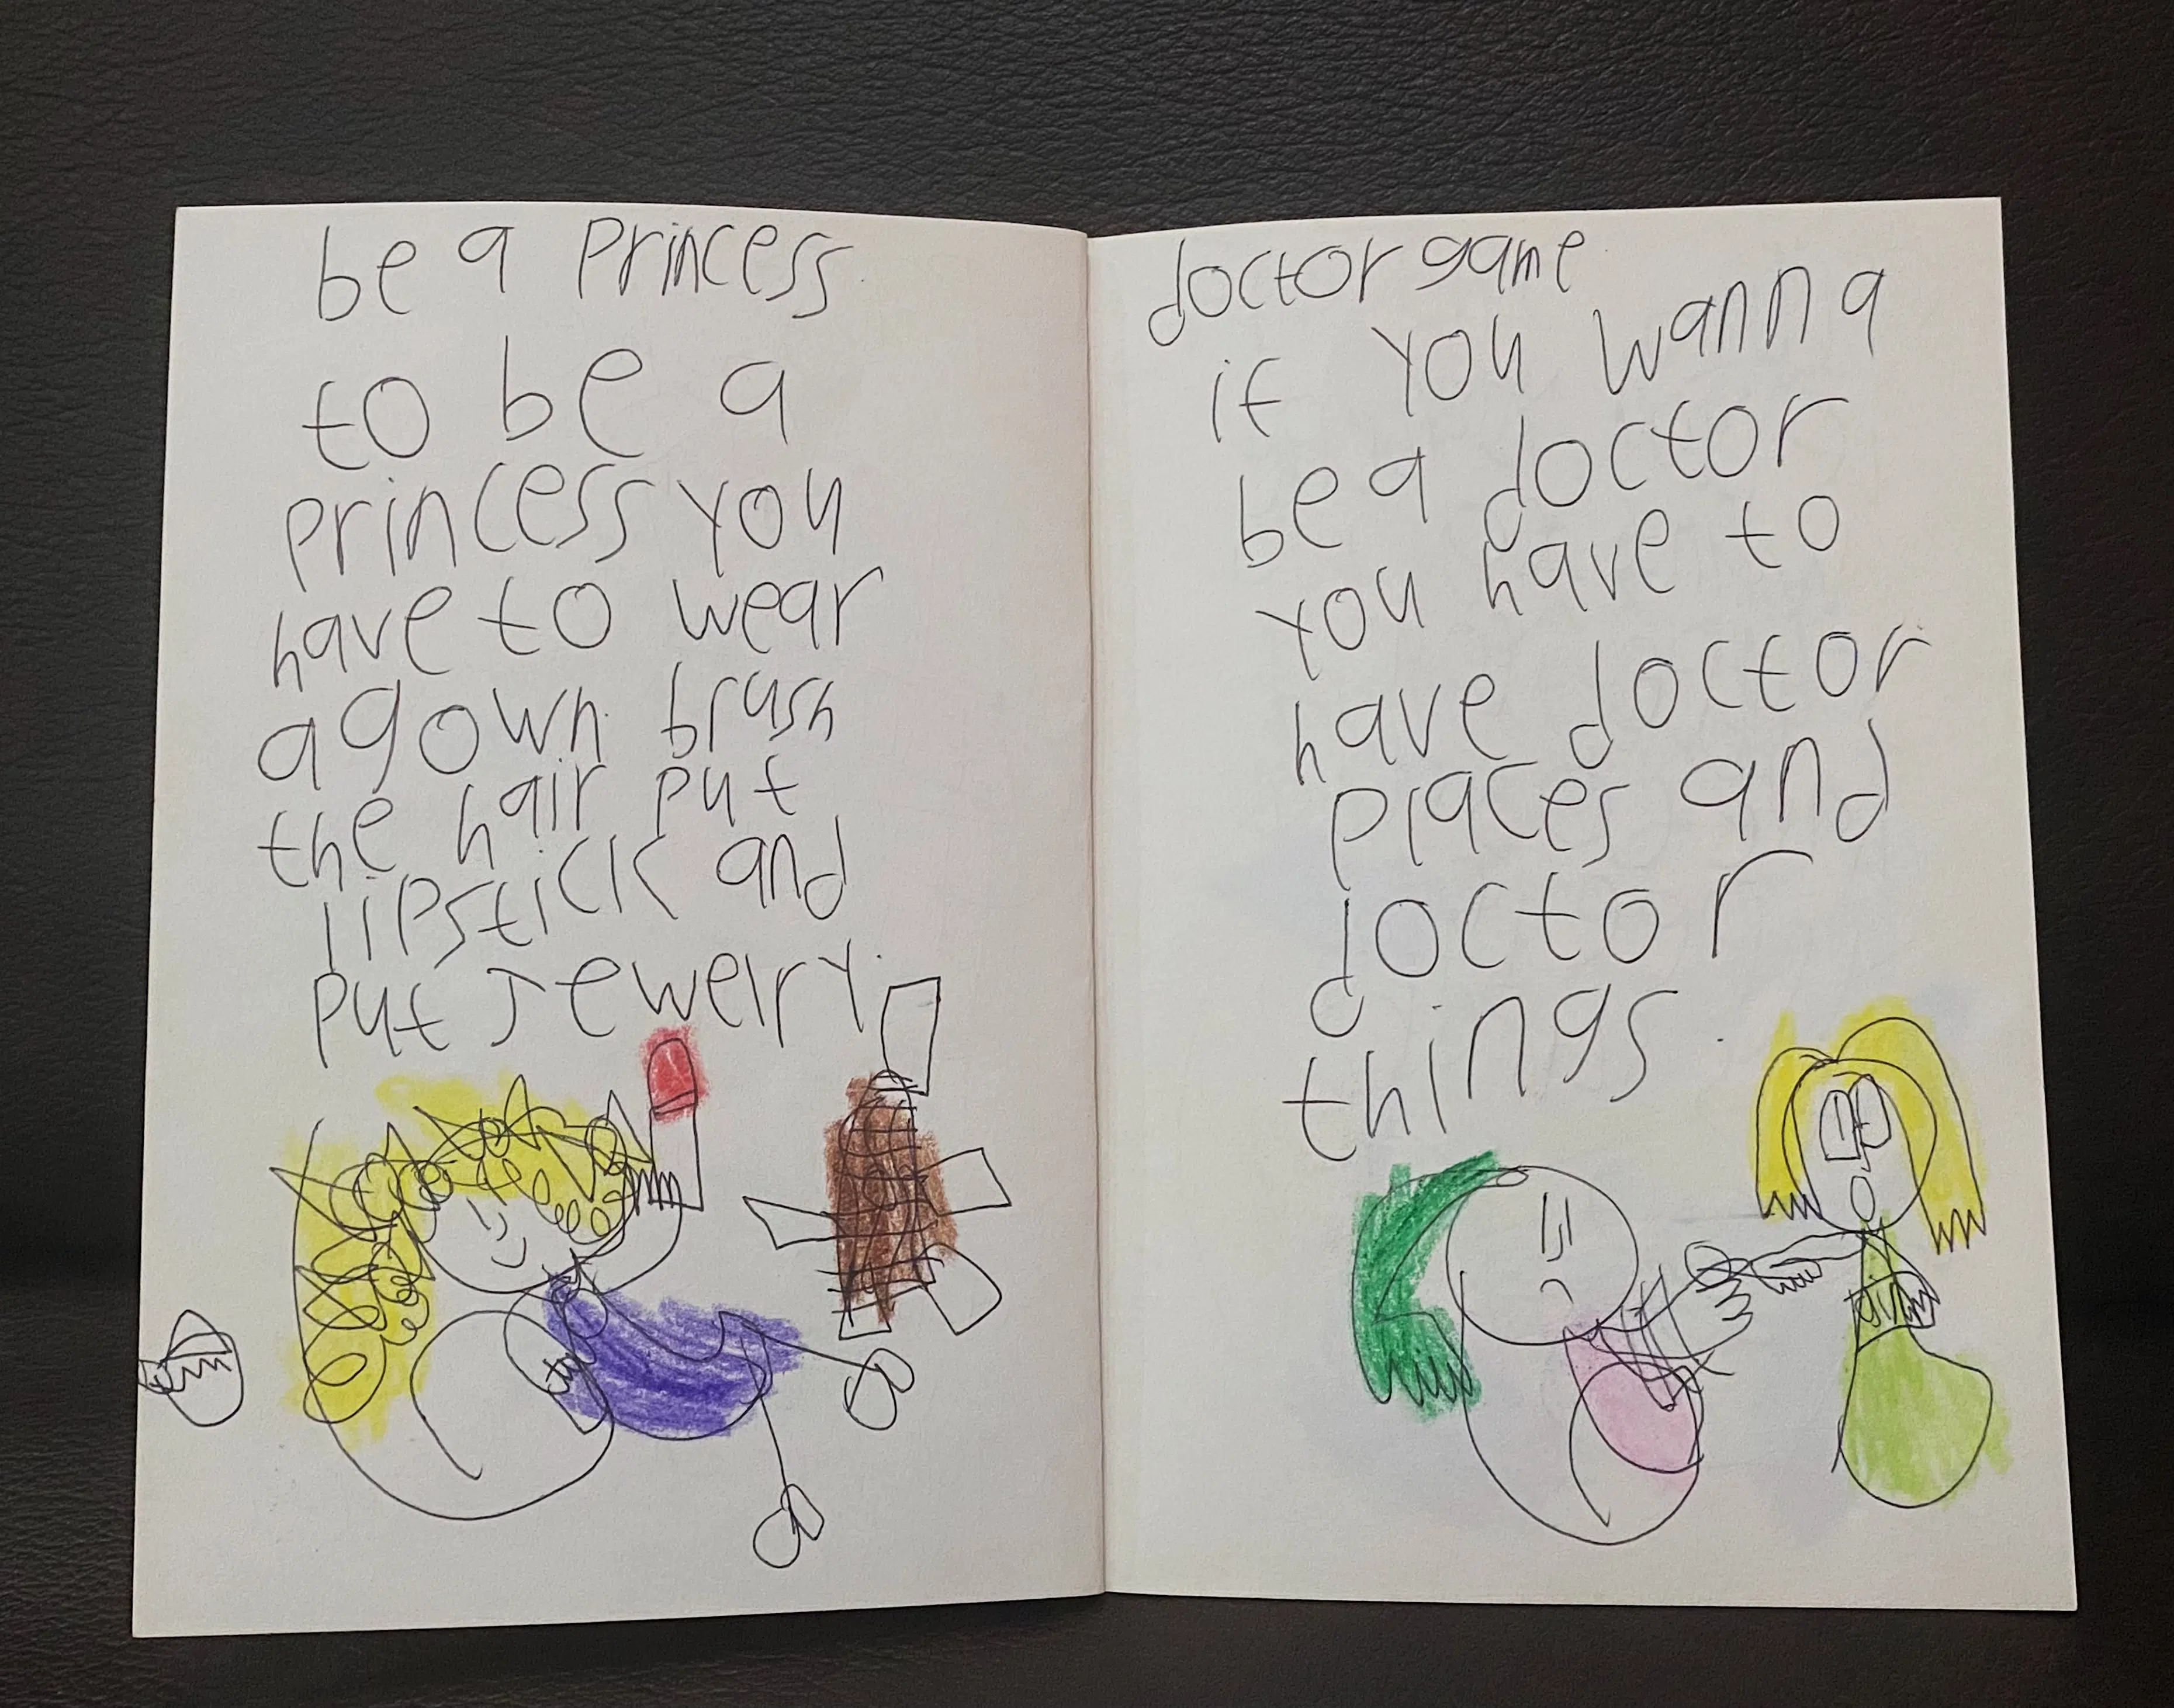 be a princess.
to be a
princess you
have to wear
a gown. brush
the hair put
lipstick and
put Jewelry.
doctor game.
if you wanna
be a doctor
you have to
have doctor
places and
doctor
things.